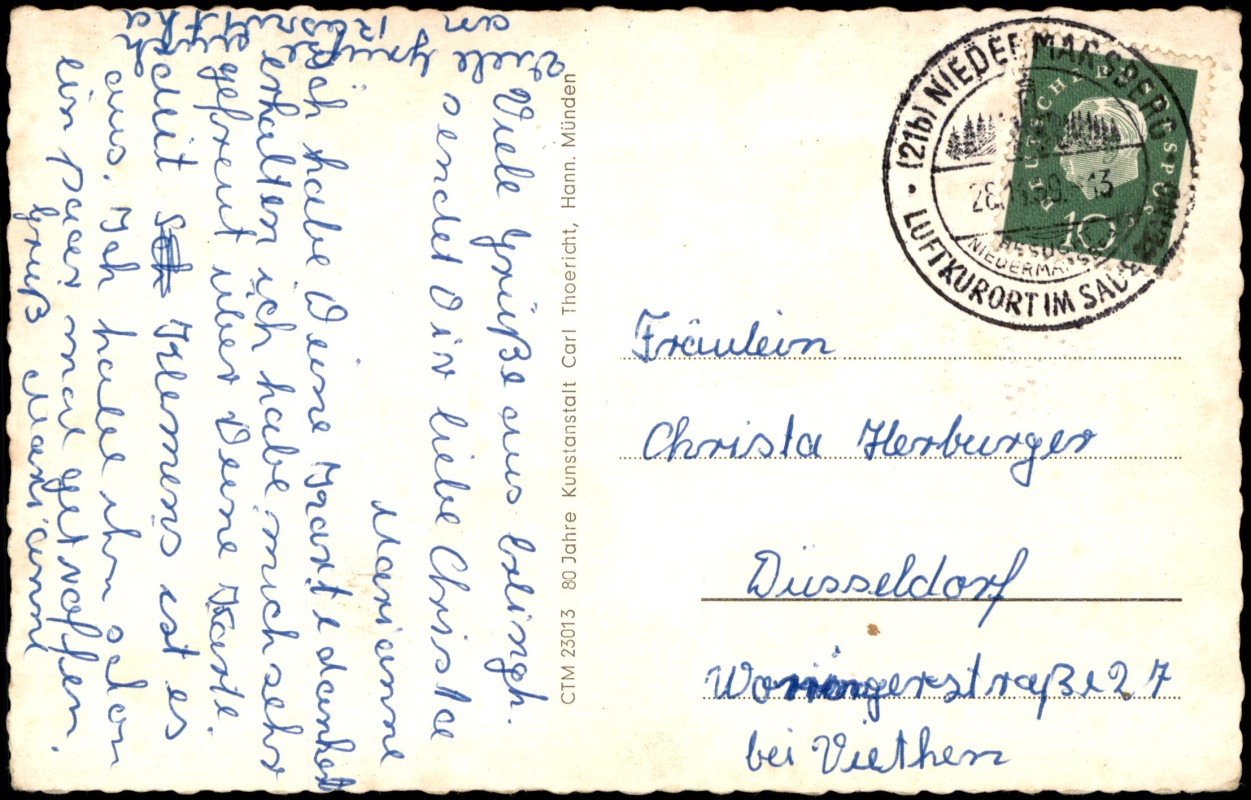 Viele Grüße aus
sendet Dir liebe Christa
Marianne
Ich habe Deine Karte dankend
erhalten ich habe mich sehr
gefreut über Deine Karte.
Mit Klemens ist es
aus. Ich habe ihn schon
ein paar mal getroffen.
Gruß Marianne
Viele Grüße
an
CTM 23013 80 Jahre Kunstanstalt Carl Thoericht, Hann. Münden
(21b) NIEDERMARSBERG
28.11.59.-13
BESUCHT
NIEDERMARSBERG
LUFTKURORT IM SAUERLAND
DEUTSCHE BUNDESPOST
10
Fräulein
Christa Herburger
Düsseldorf
Worringerstraße 27
bei Viethen